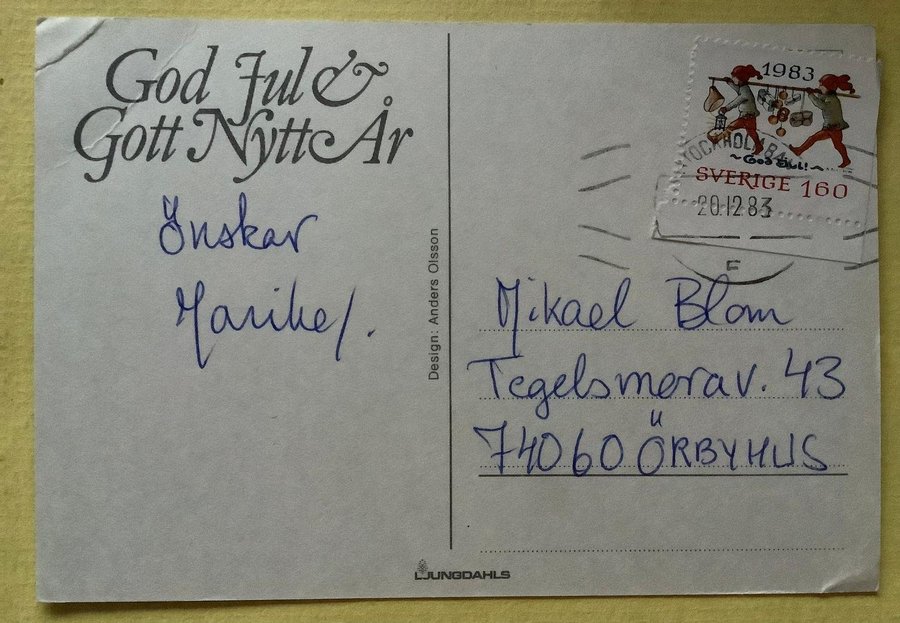 God Jul &
Gott Nytt År
Önskar
Design: Anders Olsson
LJUNGDAHLS
1983
~God Jul!~
SVERIGE 160
20.12.83
Mikael Blom
Tegelsmorav. 43
74060 ÖRBYHUS